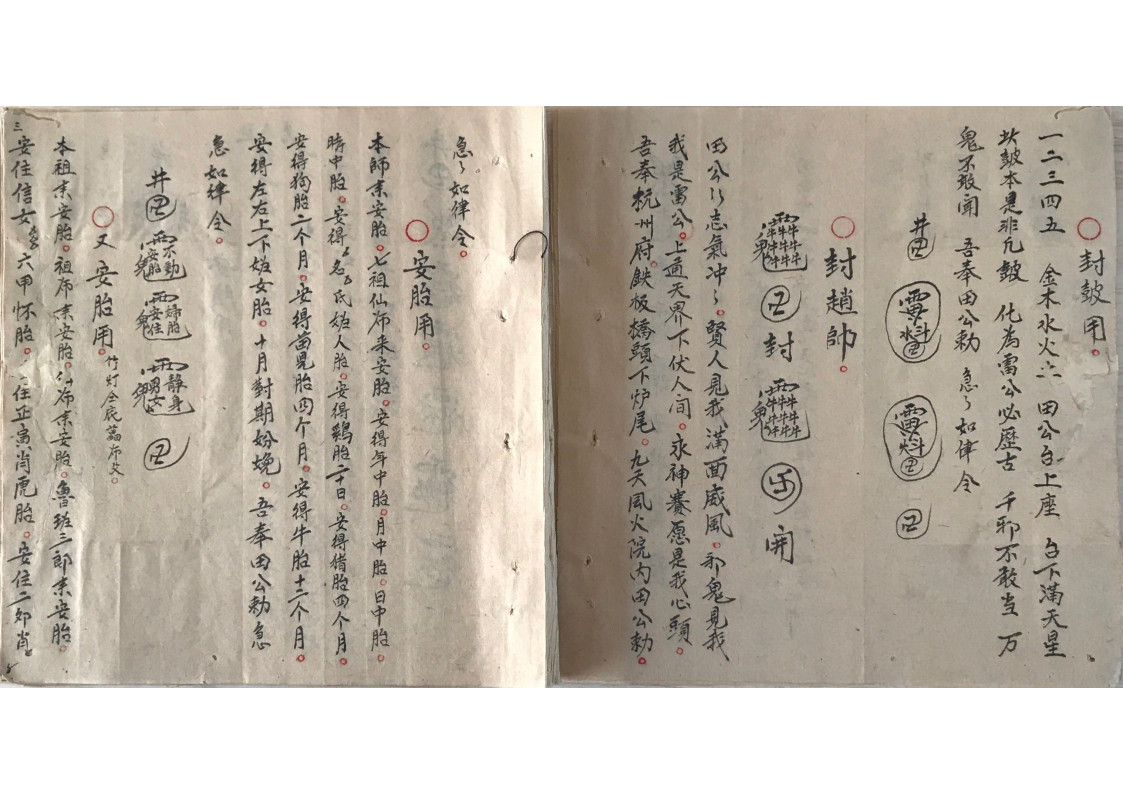 ○封鼓用。
一二三四五 金木水火土 田公台上座 台下滿天星
坎鼓本是非凡鼓 化為雷公必歷古 千邪不敢当 万
鬼不敢聞 吾奉田公勅 急〻如律令
井
○封趙帥。
封
開
田公公志氣冲〻賢人見我滿面威風。邪鬼見我
我是雷公。上通天界下伏人间。永神賽愿是我心頭。
吾奉杭州府。鉄板橋頭下炉尾。九天風火院内田公勅。
急〻如律令。
○安胎用。
本師来安胎。七祖仙师来安胎。安得年中胎。月中胎。日中胎。
時中胎。安得厶名厶氏姙人胎。安得鷄胎二十日。安得猪胎四个月。
安得狗胎二个月。安得苗晃胎四个月。安得牛胎十二个月。
安得左右上下姙女胎。十月對期妢娩。吾奉田公勅急
急如律令。
井
○又安胎用。
本祖来安胎。祖师来安胎。仙师来安胎。魯班三郎来安胎。
三
安住信女厶名六甲怀胎。安住正寅肖虎胎。安住二卯肖